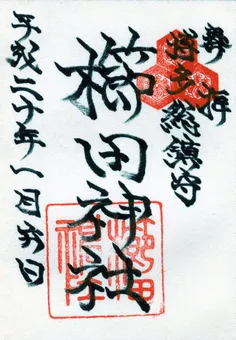 奉拝
博多総鎮守
櫛田神社
平成二十年一月廿日
櫛田
神社